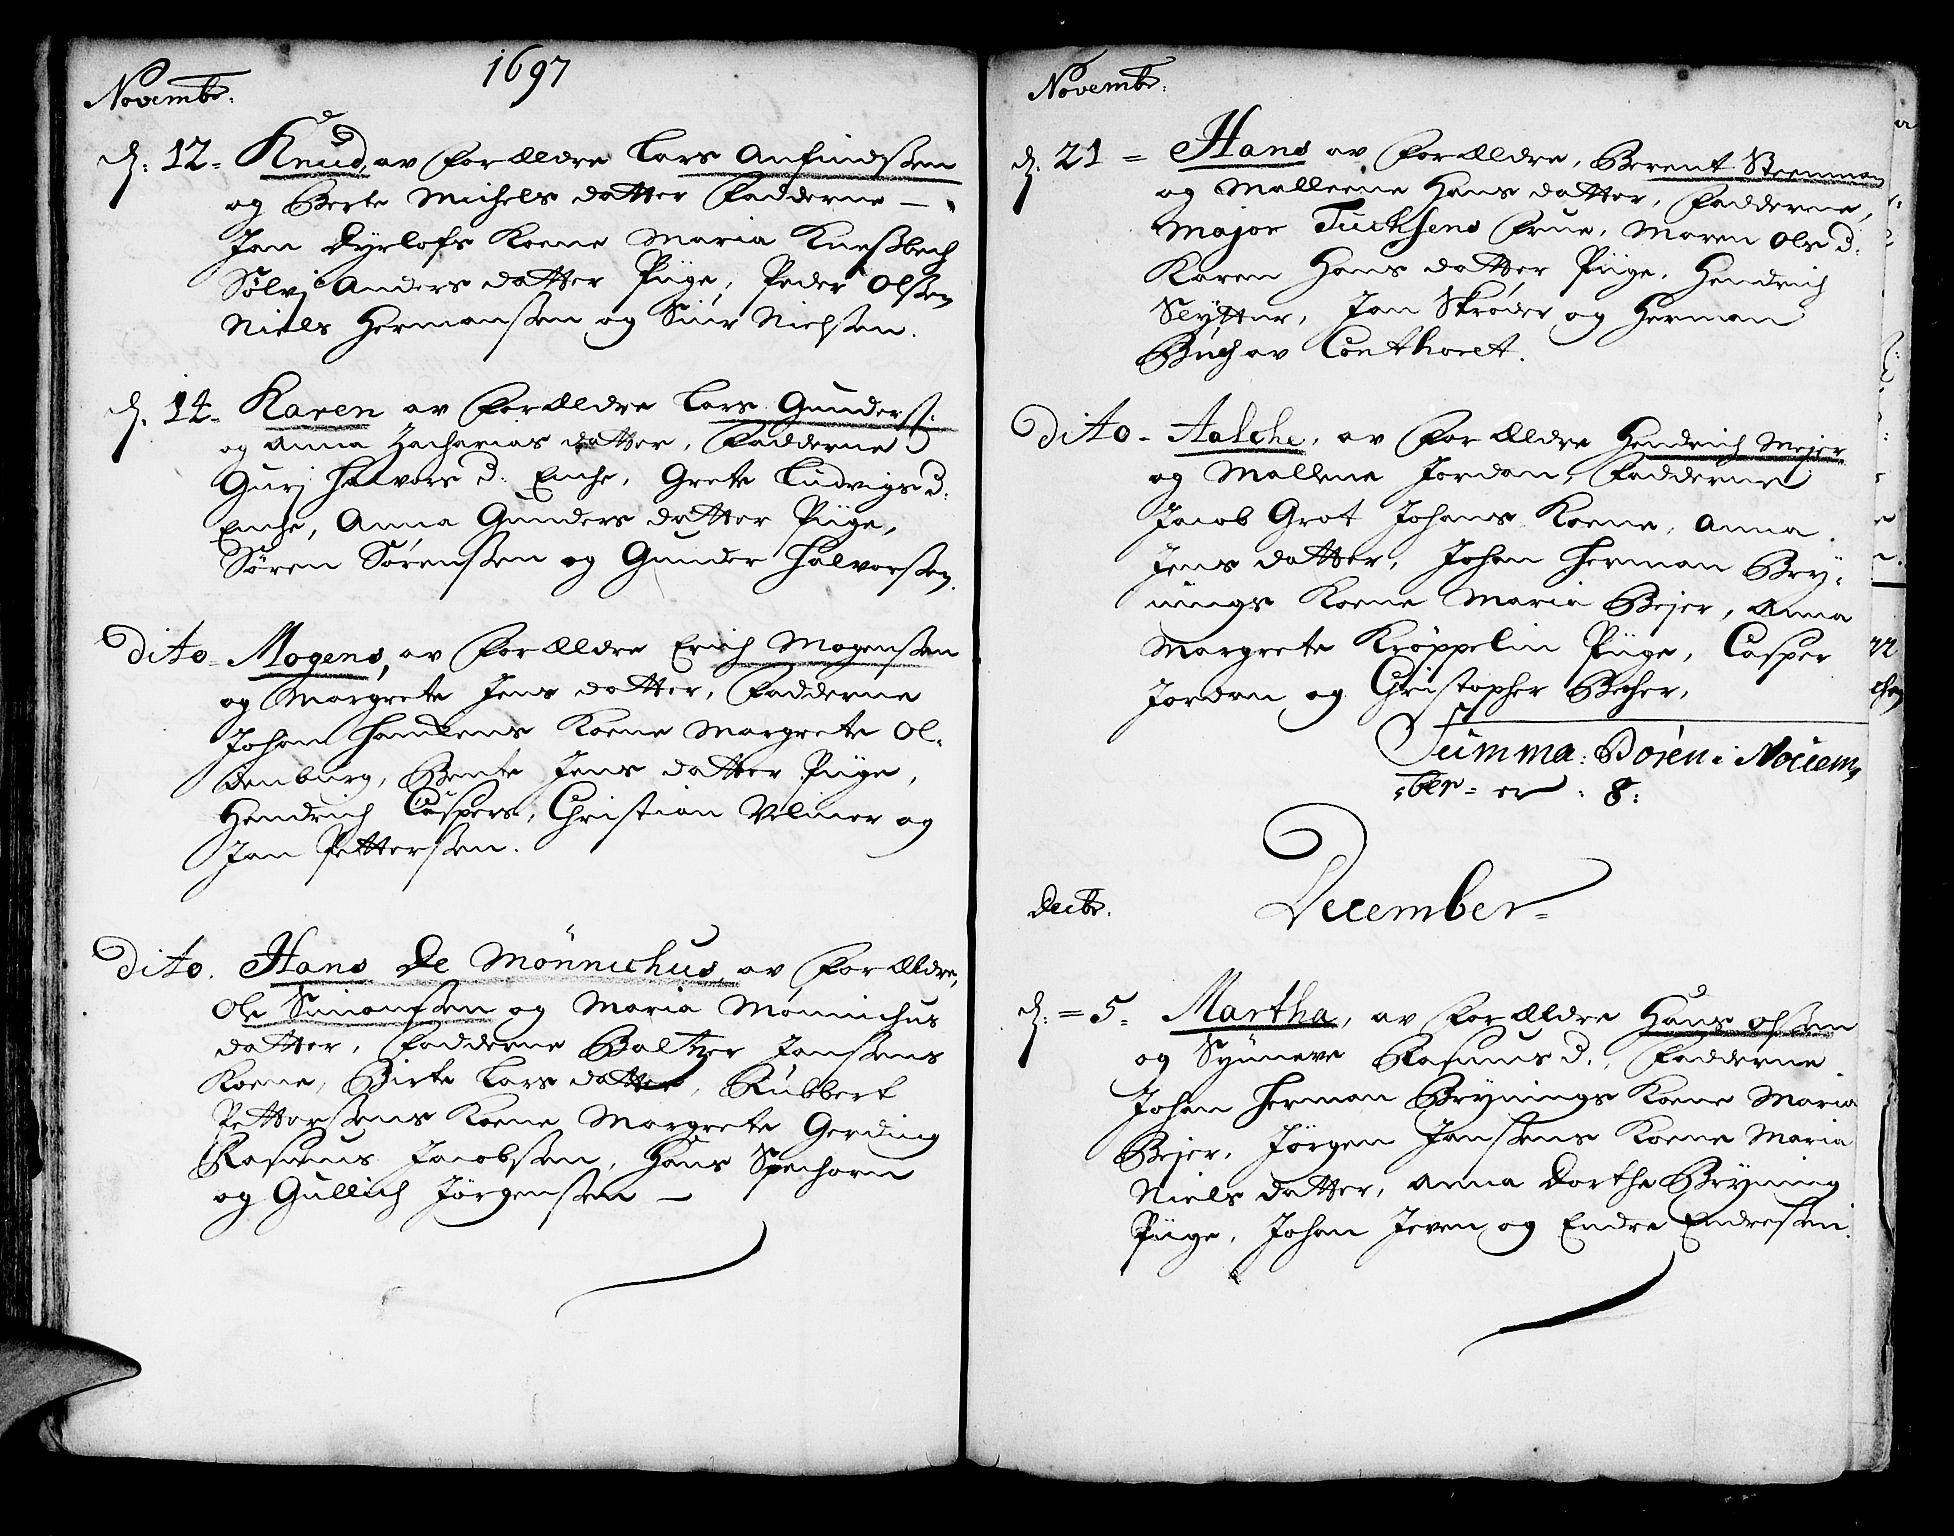 1697
Novembr:
d: 12 = Knud, av Forældre Lars Anfindssen
og Berte Michels datter Fadderne —
Jan Dyrlofs Kone Maria Knessbech
Sølvj Anders datter Piige, Peder Olssen
Niels Hermanssen og Siur Nielssen.
d: 14 - Karen av Forældre Lars Gunderss:
og Anna Zacharias datter, Fadderne
Gurj Halvors d: Enche, Grete Ludvigs d:
Enche, Anna Gunders datter Piige,
Søren Sørenssen og Gunder Halvorssen.
Dito - Mogens, av Forældre Erich Mogenssen
og Margrete Jens datter, Fadderne
Johan Hankens Kone Margrete Ol-
denburg, Bente Jens datter Piige,
Hendrich Caspers, Christian Velmer og
Jan Petterssen.
Dito. Hans De Mönnichus, av Forældre,
Ole Simonssen og Maria Mönnichus
datter, Fadderne Baltzer Janssens
Kone, Birte Lars datter, Rubbert
Petterssens Kone Margrete Gerding
Rasmus Jacobssen, Hans Spechorn
og Gullich Jørgenssen —
Novembr:
d: 21 = Hans av Forældre, Berent Steenman
og Malleene Hans datter, Fadderne,
Major Tuchsens Frue, Maren Ols d:
Karen Hans datter Piige, Hendrich
Slytter, Jan Skrøder og Herman
Buch av Conthoret.
Dito - Aalche, av Forældre Hendrich Mejer
og Mallene Jordan, Fadderne
Jacob Grot Johans Kone, Anna
Jens datter, Johan Herman Bry-
nings Kone Maria Bejer, Anna
Margrete Kröppelin Piige, Casper
Jordan og Christopher Becher,
Summa: Børen i Novem-
ber = er : 8:
Decbr. December =
d: = 5 - Martha, av Forældre Hans Olssen
og Synneve Rasmus d:, Fadderne
Johan Herman Brynings Kone Maria
Bejer, Jørgen Janssens Kone Maria
Niels datter, Anna Dorthe Bryning
Piige, Johan Jeven og Endre Endressen.